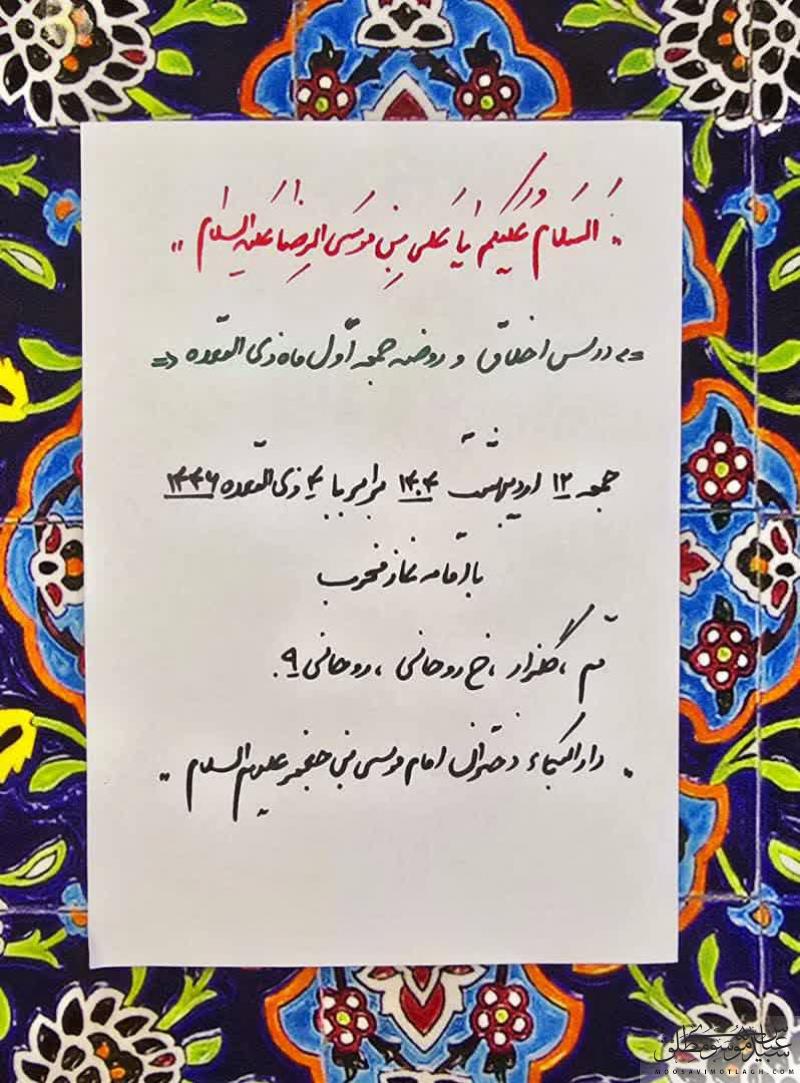 .. السلام علیکم یا علی بن موسی الرضا علیه السلام ..
درس اخلاق و روضه جمعه اول ماه ذی القعده
جمعه ۱۲ اردیبهشت ۱۴۰۴ برابر با ۴ ذی القعده ۱۴۴۶
با اقامه نماز مغرب
قم ، گلزار ، خ روحانی ، روحانی ۹.
.. دارالبکاء دختران امام موسی بن جعفر علیهم السلام ..
سید عباس موسوی مطلق
MOOSAVIMOTLAGH.COM